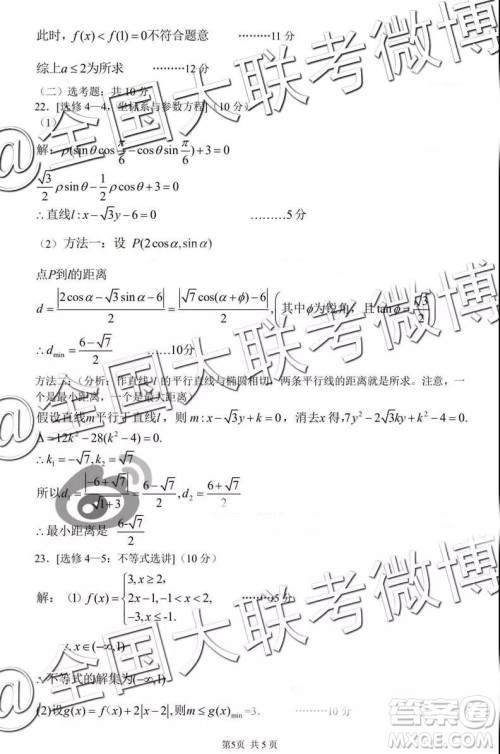 此时，f(x)<f(1)=0不符合题意 ………11分
综上a≤2为所求 ………12分
（二）选考题：共10分
22.[选修4—4，坐标系与参数方程](10分)
（1）
解：ρ(sinθcosπ/6-cosθsinπ/6)+3=0
√3/2ρsinθ-1/2ρcosθ+3=0
∴直线l：x-√3y-6=0 ………5分
（2）方法一：设 P(2cosα,sinα)
点P到l的距离
d=|2cosα-√3sinα-6|/2=|√7cos(α+φ)-6|/2,(其中φ为锐角，且tanφ=√3/2)
∴d_min=(6-√7)/2 ……10分
方法二：（分析：作直线l的平行直线与椭圆相切，两条平行线的距离就是所求。注意，一
个是最小距离，一个是最大距离）
假设直线m平行于直线l，则m:x-√3y+k=0，消去x得,7y²-2√3ky+k²-4=0.
Δ=12k²-28(k²-4)=0.
∴k₁=-√7,k₂=√7
所以d₁=|-6+√7|/√(1+3)=(6-√7)/2,d₂=(6+√7)/2
∴最小距离是 (6-√7)/2
23.[选修4—5：不等式选讲](10分)
解：（1）f(x)={3,x≥2, 2x-1,-1<x<2, -3,x≤-1. ………5分
∴x∈(-∞,1)
∴不等式的解集为(-∞,1)
(2)设g(x)=f(x)+2|x-2|,则m≤g(x)_min=3. ………10分
第5页 共5页
@全国大联考微博
@全国大联考微博
@全国大联考微博
答案圈
MXQE.COM